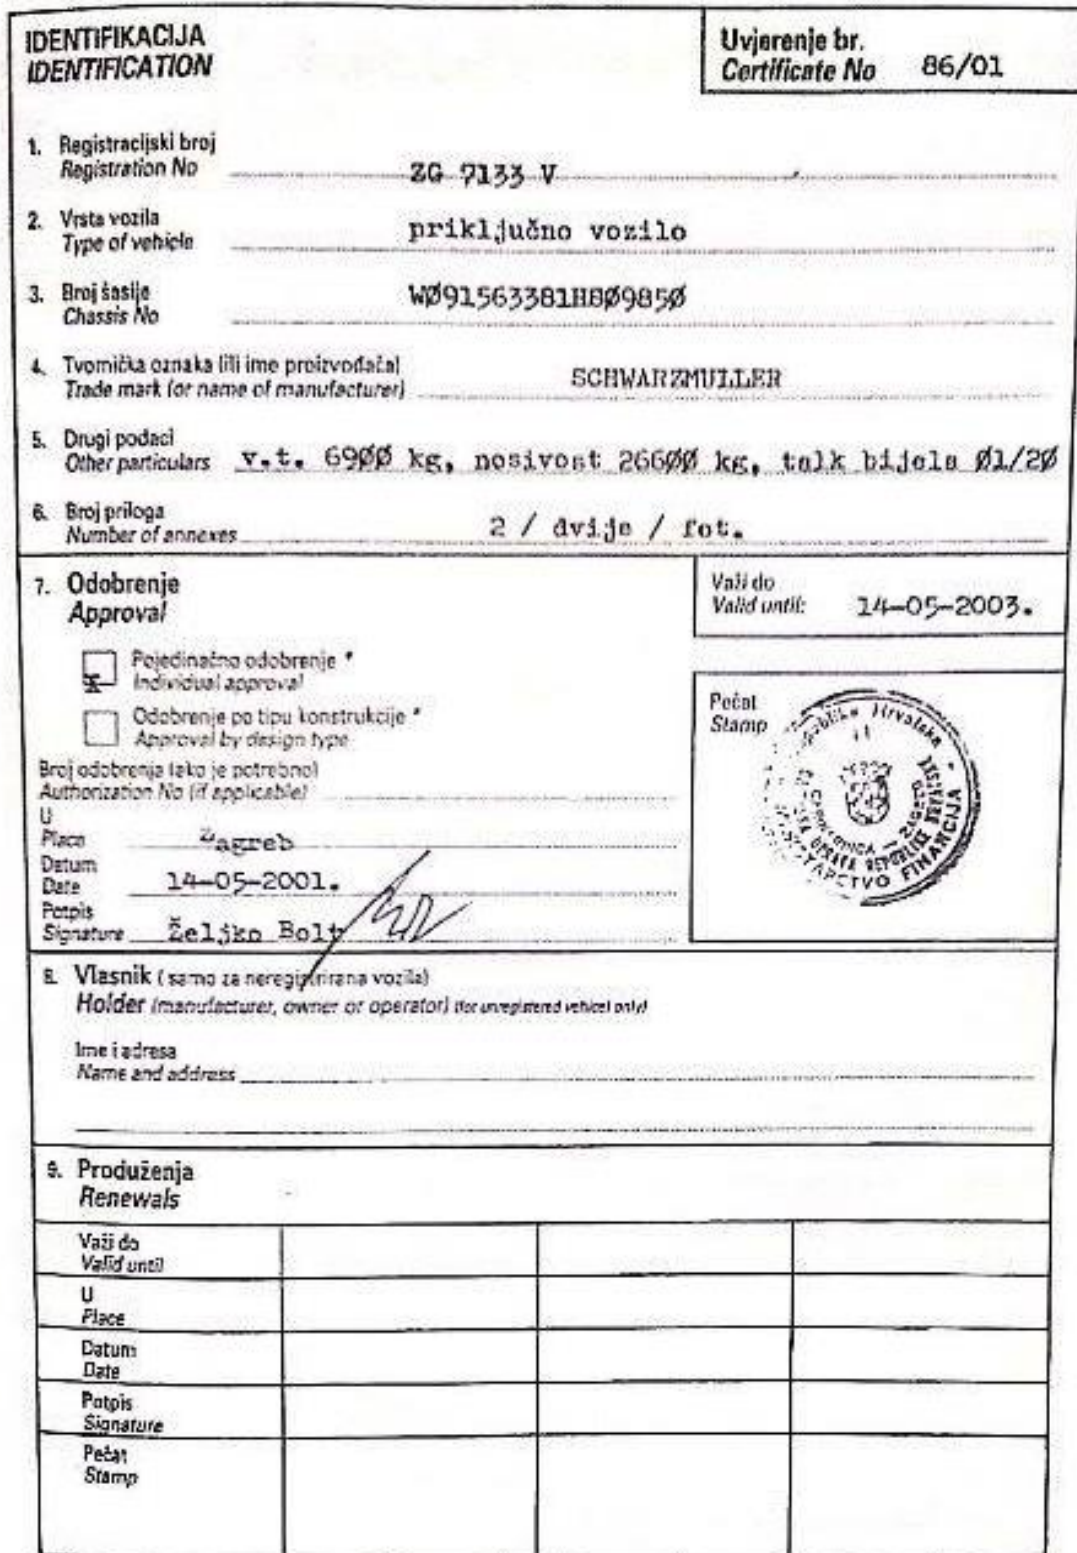 IDENTIFIKACIJA
IDENTIFICATION
Uvjerenje br.
Certificate No 86/01
1. Registracijski broj
Registration No ZG 7133 V
2. Vrsta vozila
Type of vehicle priključno vozilo
3. Broj šasije
Chassis No WØ91563381H8Ø985Ø
4. Tvornička oznaka (ili ime proizvođača)
Trade mark (or name of manufacturer) SCHWARZMULLER
5. Drugi podaci
Other particulars v.t. 69ØØ kg, nosivost 266ØØ kg, talk bijela Ø1/2Ø
6. Broj priloga
Number of annexes 2 / dvije / fot.
7. Odobrenje
Approval
Važi do
Valid until: 14-05-2003.
X Pojedinačno odobrenje *
Individual approval
Odobrenje po tipu konstrukcije *
Approval by design type
Broj odobrenja (ako je potrebno)
Authorization No (if applicable)
U
Place Zagreb
Datum
Date 14-05-2001.
Potpis
Signature Željko Bolt
Pečat
Stamp
Republika Hrvatska
MINISTARSTVO FINANCIJA
8. Vlasnik (samo za neregistrirana vozila)
Holder (manufacturer, owner or operator) (for unregistered vehicel only)
Ime i adresa
Name and address
9. Produženja
Renewals
Važi do
Valid until
U
Place
Datum
Date
Potpis
Signature
Pečat
Stamp